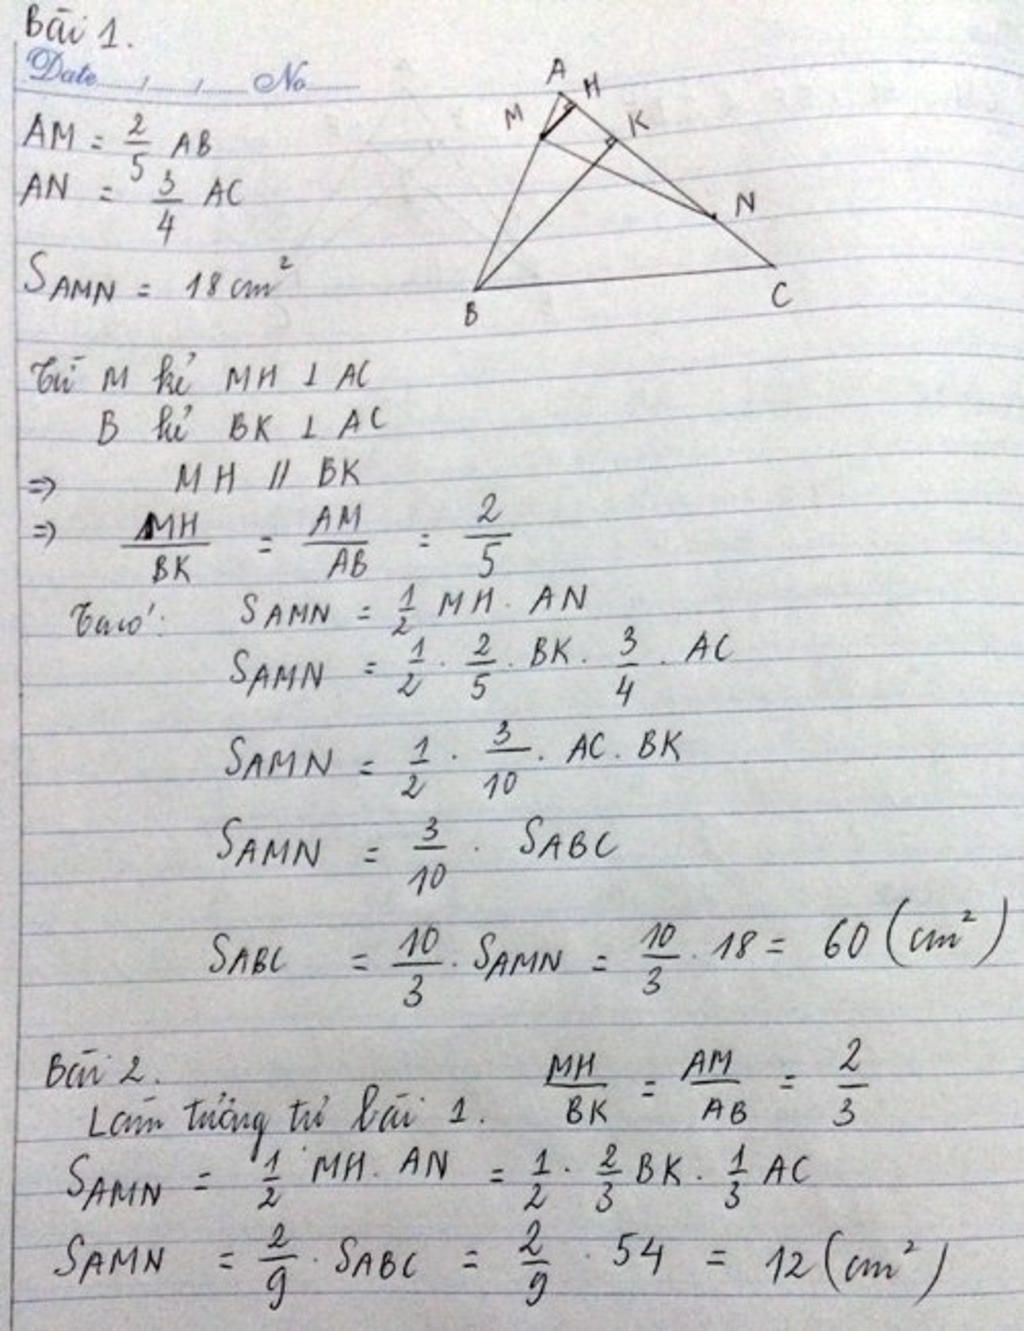 Bài 1.
Date / / No
AM = 2/5 AB
AN = 3/4 AC
S_AMN = 18 cm²
A
H
M
K
N
B
C
Từ M kẻ MH ⊥ AC
B kẻ BK ⊥ AC
=> MH // BK
=> MH/BK = AM/AB = 2/5
Ta có: S_AMN = 1/2 MH . AN
S_AMN = 1/2 . 2/5 . BK . 3/4 . AC
S_AMN = 1/2 . 3/10 . AC . BK
S_AMN = 3/10 . S_ABC
S_ABC = 10/3 . S_AMN = 10/3 . 18 = 60 (cm²)
Bài 2.
Làm tương tự bài 1. MH/BK = AM/AB = 2/3
S_AMN = 1/2 MH . AN = 1/2 . 2/3 BK . 1/3 AC
S_AMN = 2/9 . S_ABC = 2/9 . 54 = 12 (cm²)